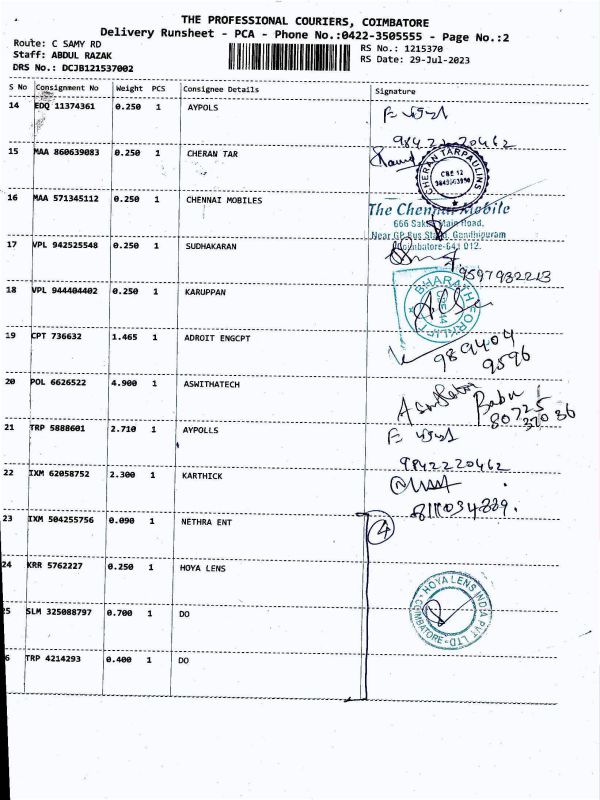 THE PROFESSIONAL COURIERS, COIMBATORE
Delivery Runsheet - PCA - Phone No.:0422-3505555 - Page No.:2
Route: C SAMY RD
Staff: ABDUL RAZAK
DRS No.: DCJB121537002
RS No.: 1215370
RS Date: 29-Jul-2023
S No Consignment No Weight PCS Consignee Details Signature
14 EDQ 11374361 0.250 1 AYPOLS
98422 20462
15 MAA 860639083 0.250 1 CHERAN TAR
CHERAN TARPAULINS
CBE 12
16 MAA 571345112 0.250 1 CHENNAI MOBILES
The Chennai Mobile
666 Main Road,
Near GP Bus Stand, Gandhipuram
Coimbatore-641 012.
17 VPL 942525548 0.250 1 SUDHAKARAN
9597932213
18 VPL 944404402 0.250 1 KARUPPAN
BHARATH FORKLIFT
19 CPT 736632 1.465 1 ADROIT ENGCPT
989404
9596
20 POL 6626522 4.900 1 ASWITHATECH
Babu
80725
37036
21 TRP 5888601 2.710 1 AYPOLLS
9842220462
22 IXM 62058752 2.300 1 KARTHICK
8111034889.
23 IXM 504255756 0.090 1 NETHRA ENT
4
24 KRR 5762227 0.250 1 HOYA LENS
HOYA LENS INDIA PVT LTD
COIMBATORE
5 SLM 325088797 0.700 1 DO
6 TRP 4214293 0.400 1 DO